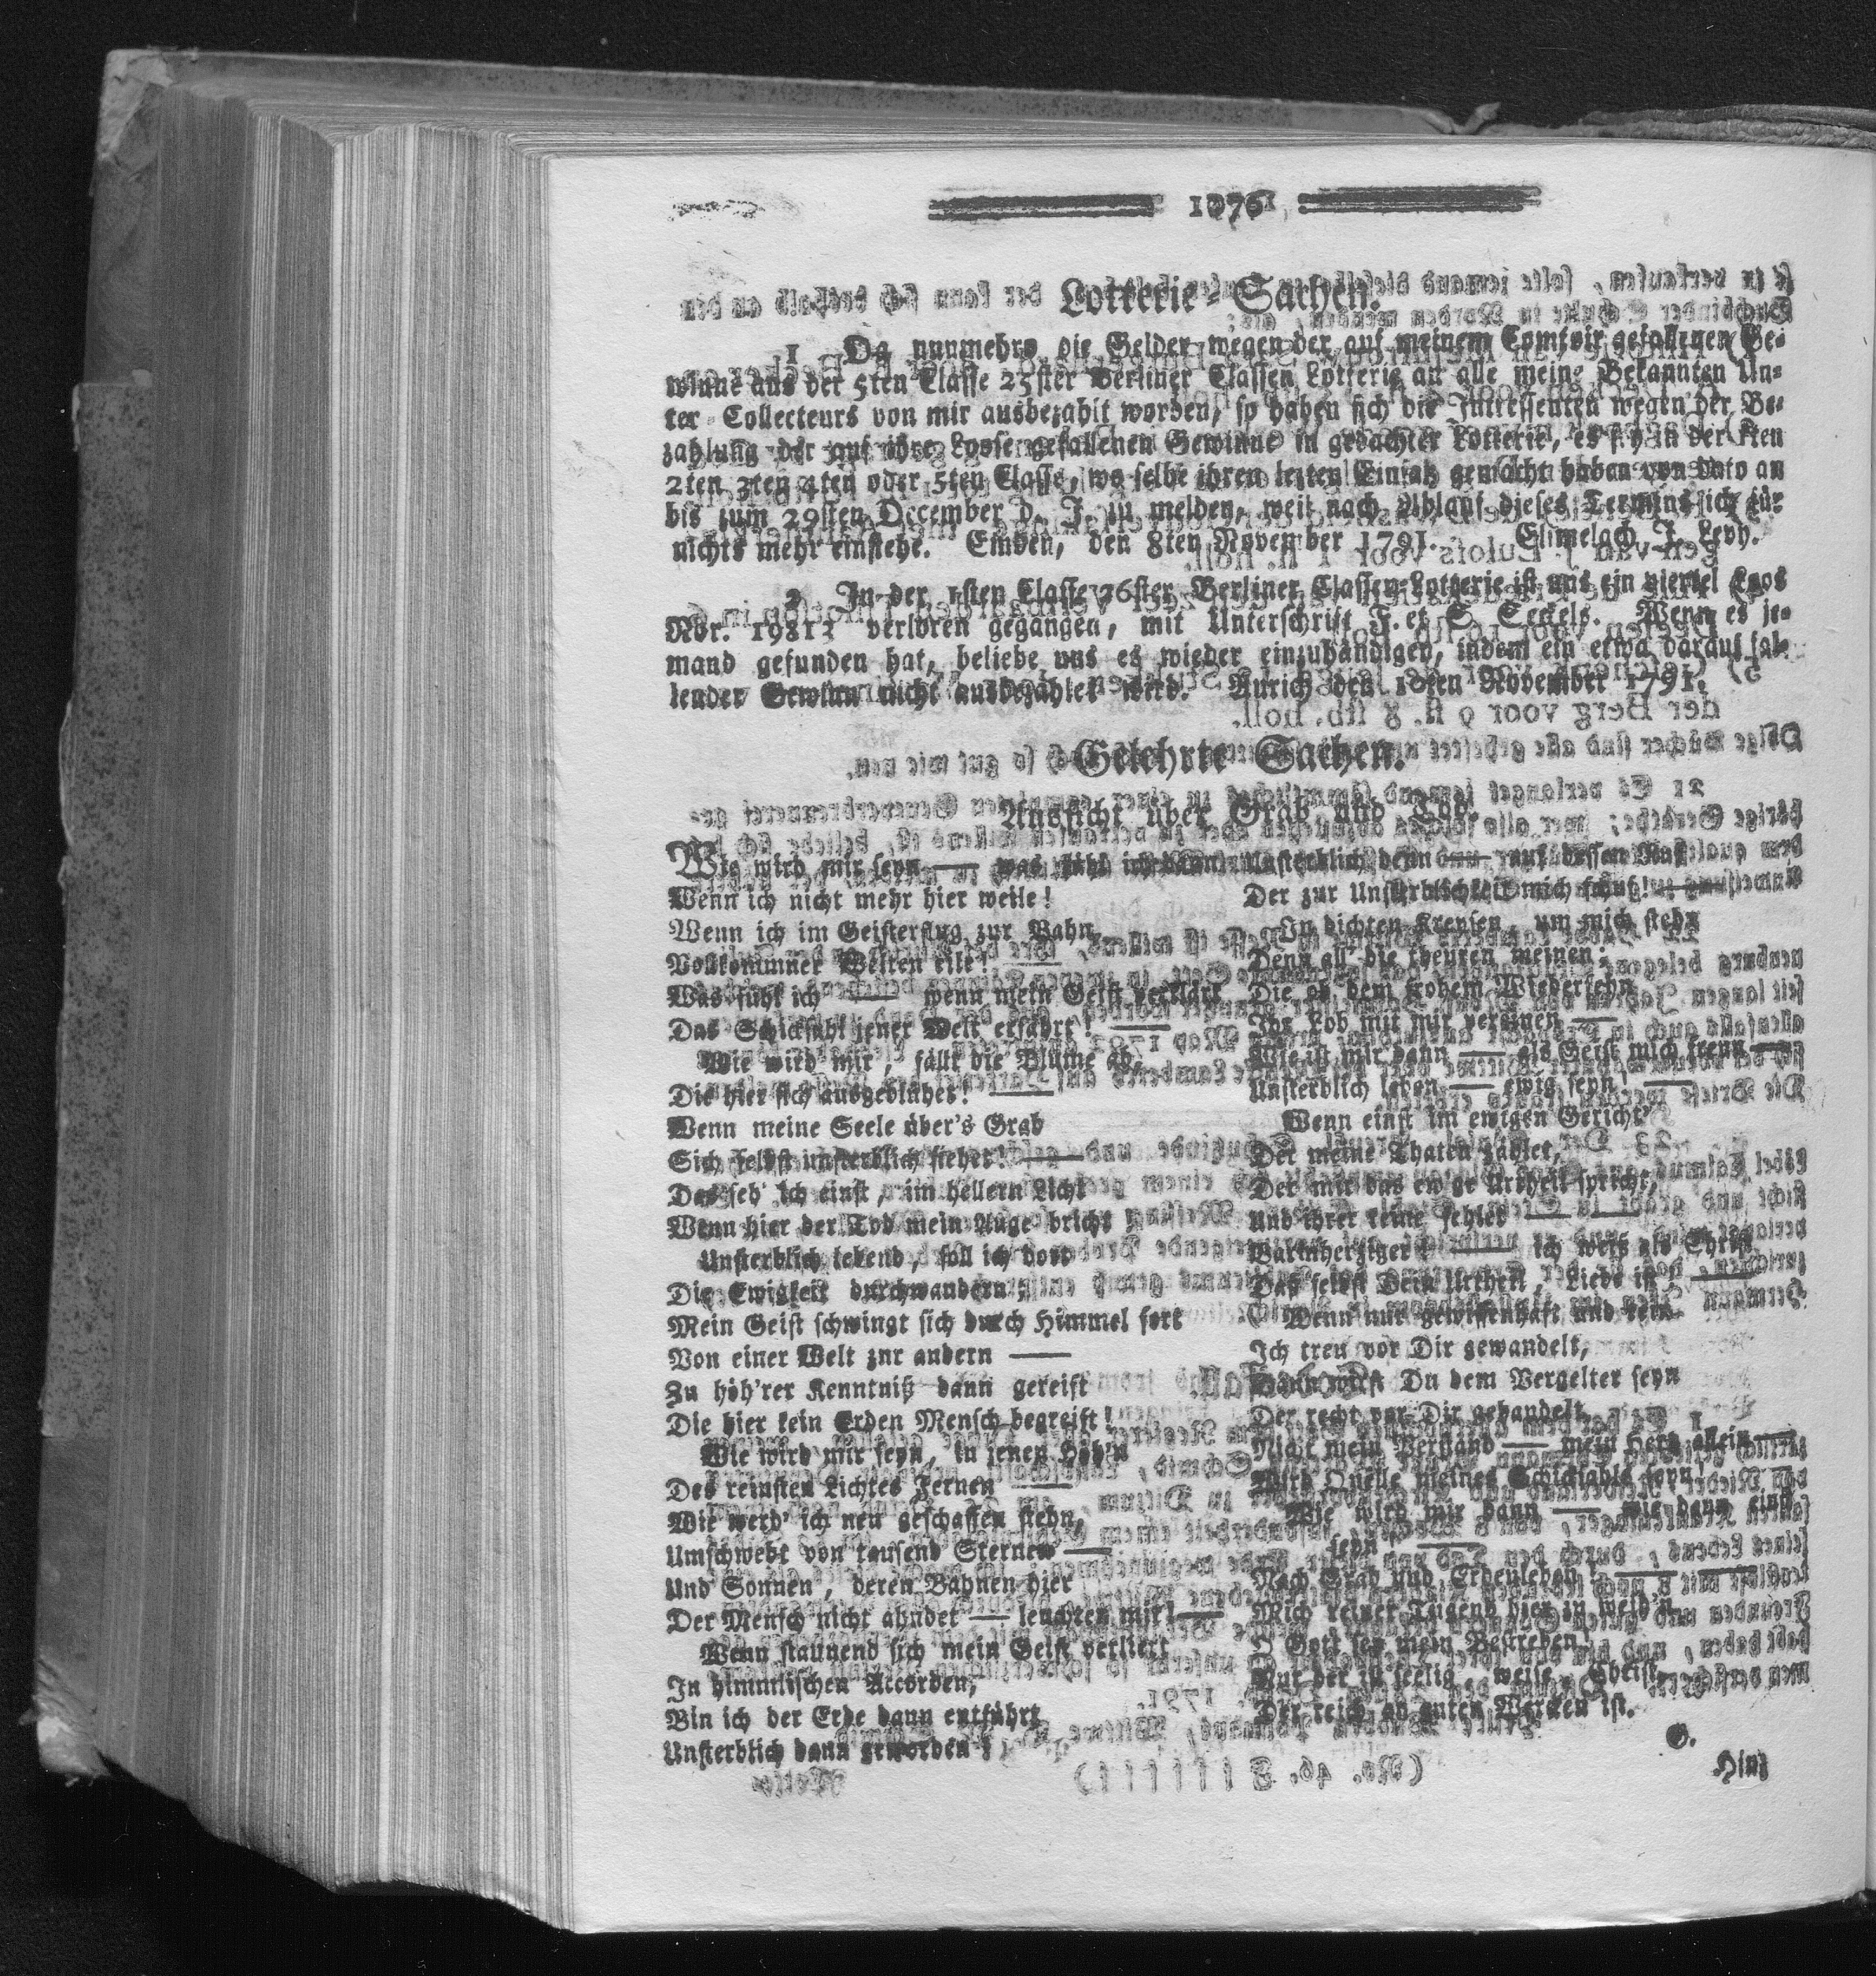 1076
Lotterie-Sachen.
1 Da nunmehro die Gelder wegen der auf meinem Comtoir gefallenen Ge-
winne aus der 5ten Classe 25ster Berliner Classen Lotterie an alle meine Bekannten Un-
ter-Collecteurs von mir ausbezahlt worden, so haben sich die Interessenten wegen der Be-
zahlung der auf ihre Loose gefallenen Gewinne in gedachter Lotterie, es sey in der 1sten
2ten 3ten 4ten oder 5ten Classe, wo selbe ihren lezten Einsaz gemacht haben von dato an
bis zum 29sten December d. J. zu melden, weil nach Ablauf dieses Termins ich für
nichts mehr einstehe. Emden, den 8ten November 1791. Elimelach J. Levy.
2 In der 1sten Classe 26ster Berliner Classen-Lotterie ist uns ein viertel Loos
Nor. 19813 verloren gegangen, mit Unterschrift J. et S. Seckels. Wenn es je-
mand gefunden hat, beliebe uns es wieder einzuhändigen, indem ein etwa darauf fal-
lender Gewinn nicht ausbezahlet wird. Aurich den 18ten November 1791.
Gelehrte Sachen.
Aussicht über Grab und Tod.
Wie wird mir seyn — was fühl ich dann
Wenn ich nicht mehr hier weile!
Wenn ich im Geisterflug zur Bahn
Vollkommner Welten eile! —
Was fühl ich — wenn mein Geist verklärt
Das Schicksahl jener Welt erfährt! —
Wie wird mir, fällt die Blume ab,
Die hier sich ausgeblühet! —
Wenn meine Seele über's Grab
Sich selbst unsterblich siehet! —
Das seh' ich einst, im hellern Licht
Wenn hier der Tod mein Auge bricht
Unsterblich lebend, soll ich dort
Die Ewigkeit durchwandern,
Mein Geist schwingt sich durch Himmel fort
Von einer Welt znr andern —
Zu höh'rer Kenntniß dann gereift
Die hier kein Erden Mensch begreift!
Wie wird mir seyn, in jenen Höh'n
Des reinsten Lichtes Fernen —
Wie werd' ich neu geschaffen stehn,
Umschwebt von tausend Sternen —
Und Sonnen, deren Bahnen hier
Der Mensch nicht ahndet — leuchten mir! —
Wenn staunend sich mein Geist verliert
In himmlischen Accorden,
Bin ich der Erde dann entführt
Unsterblich dann geworden!
Unsterblich denn — auf dessen Ruf
Der zur Unsterblichkeit mich schuf! —
In dichten Kreysen, um mich stehn
Denn all' die theuren meinen,
Die ob dem frohem Wiedersehn
Ihr Lob mit mir vereinen —
Wie ist mir dann — als Geist mich freun —
Unsterblich leben — ewig seyn! —
Wenn einst im ewigen Gericht'
Der meine Thaten zählet,
Der mir das ew'ge Urtheil spricht,
Und ihrer keine fehlet —
Barmherziger! — ich weis als Christ
Das selbst Dein Urtheil, Liebe ist, —
Wenn nur gewissenhaft und rein
Ich treu vor Dir gewandelt,
Dann wirst Du dem Vergelter seyn
Der recht vor Dir gehandelt.
Nicht mein Verstand — mein Herz allein —
Wird Quelle meines Schicksahls seyn
Wie wird mir dann — wie dann einst
seyn —
Nach Grab und Erdenleben! —
Mich reiner Tugend hier zu weih'n,
O Gott sey mein Bestreben!
Nur der ist seelig, weise, Christ,
Der reich an guten Werken ist.
O.